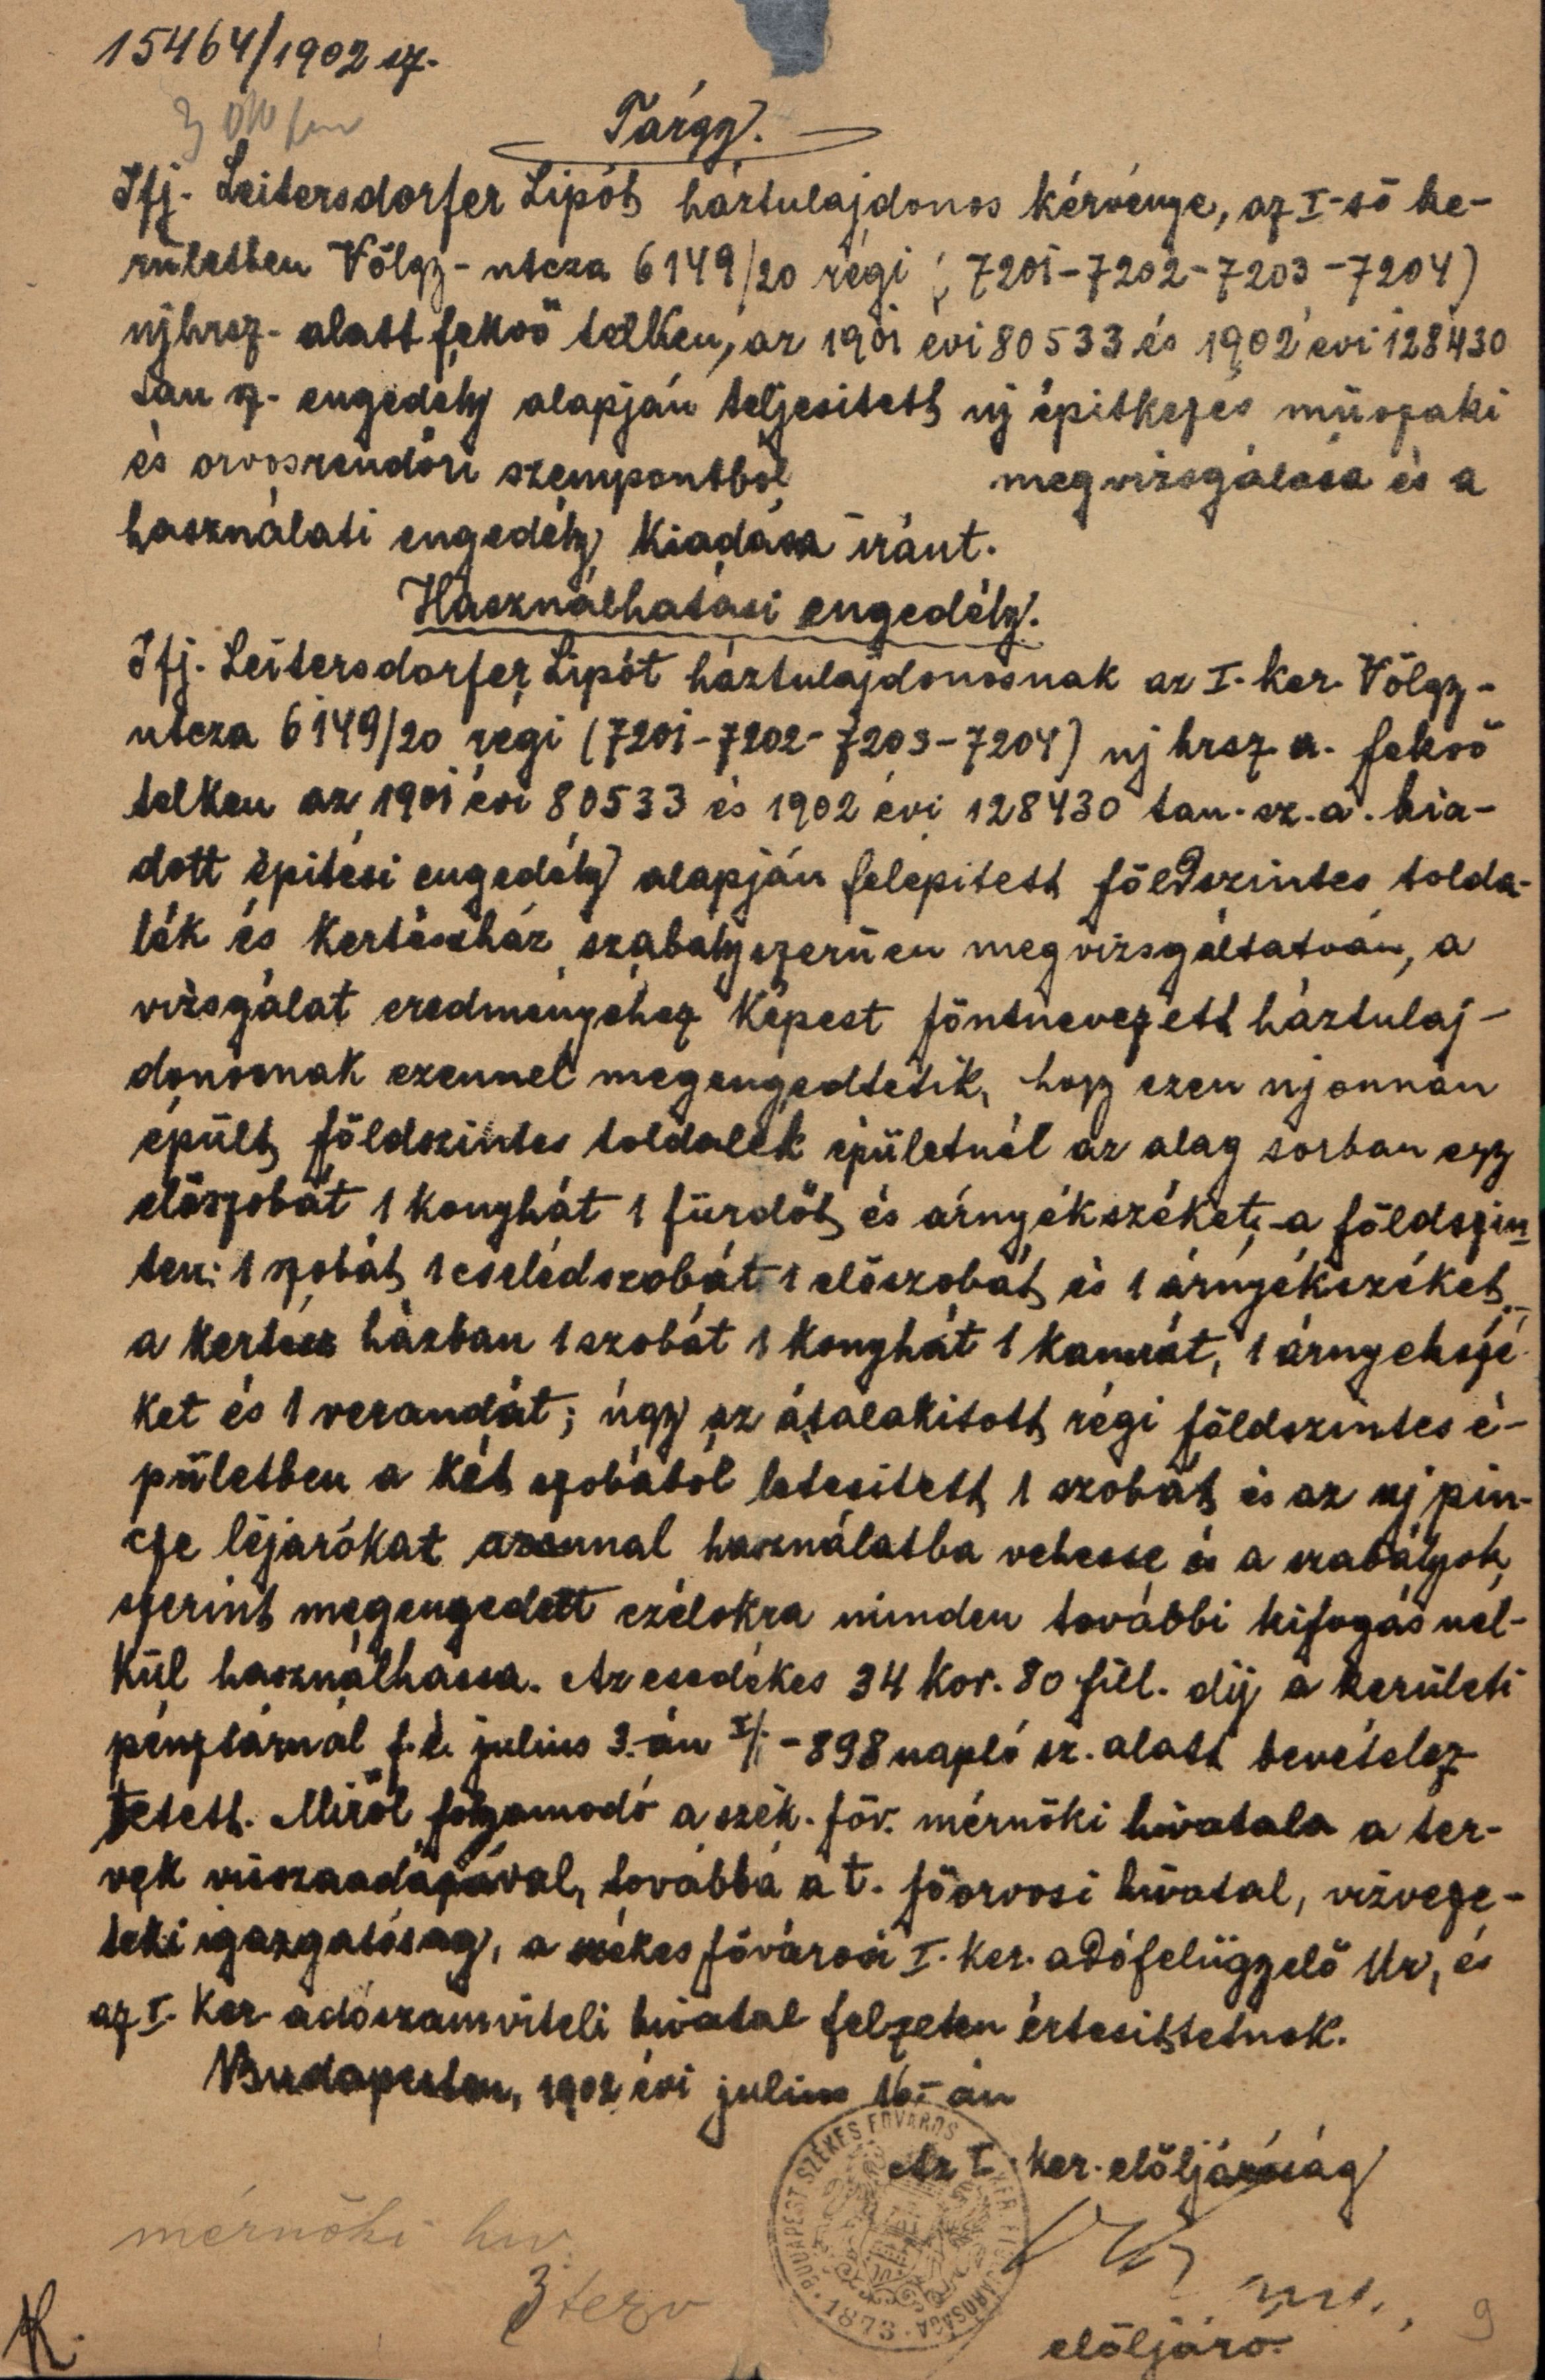 15464/1902 sz.
Tárgy.
Ifj. Leitersdorfer Lipót háztulajdonos kérvénye, az I-ső ke-
rületben Völgy-utcza 6149/20 régi (7201-7202-7203-7204)
uj hrsz. alatt fekvő telken, az 1901 évi 80533 és 1902 évi 128430
tan sz. engedély alapján teljesitett uj épitkezés müszaki
és orvosrendőri szempontból megvizsgálása és a
használati engedély kiadása iránt.
Használhatási engedély.
Ifj. Leitersdorfer Lipót háztulajdonosnak az I. ker. Völgy-
utcza 6149/20 régi (7201-7202-7203-7204) uj hrsz. a. fekvő
telken az 1901 évi 80533 és 1902 évi 128430 tan. sz. a. kia-
dott épitési engedély alapján felépitett földszintes tolda-
lék és kertészház szabályszerüen megvizsgáltatván, a
vizsgálat eredményéhez képest föntnevezett háztulaj-
donosnak ezennel megengedtetik, hogy ezen ujonnan
épült földszintes toldalék épületnél az alag sorban egy
előszobát 1 konyhát 1 fürdőt és árnyékszéket, - a földszin
ten: 1 szobát, 1 cselédszobát 1 előszobát és 1 árnyékszéket,
a kertész házban 1 szobát 1 konyhát 1 kamrát, 1 árnyékszé-
ket és 1 verandát; úgy az átalakitott régi földszintes é-
pületben a két szobából létesitett 1 szobát és az uj pin-
cze lejárókat azonnal használatba vehesse és a szabályok
szerint megengedett czélokra minden további kifogás nél-
kül használhassa. Az esedékes 34 kor. 80 fill. dij a kerületi
pénztárnál f. é. julius 3.-án I/1 - 898 napló sz. alatt bevételez
tetett. Miről folyamodó a szék. főv. mérnöki hivatala a ter-
vek visszaadásával, továbbá a t. főorvosi hivatal, vizveze-
téki igazgatóság, a székes fővárosi I. ker. adófelügyelő Ur, és
az I. ker adószámviteli hivatal felzeten értesittetnek.
Budapesten, 1902 évi julius 16.-án
Az I. ker. elöljáróság
BUDAPEST SZÉKES FŐVÁROS I. KER. ELÖLJÁRÓSÁGA 1873
mérnöki hiv.
3 terv
elöljáró.
K.
9